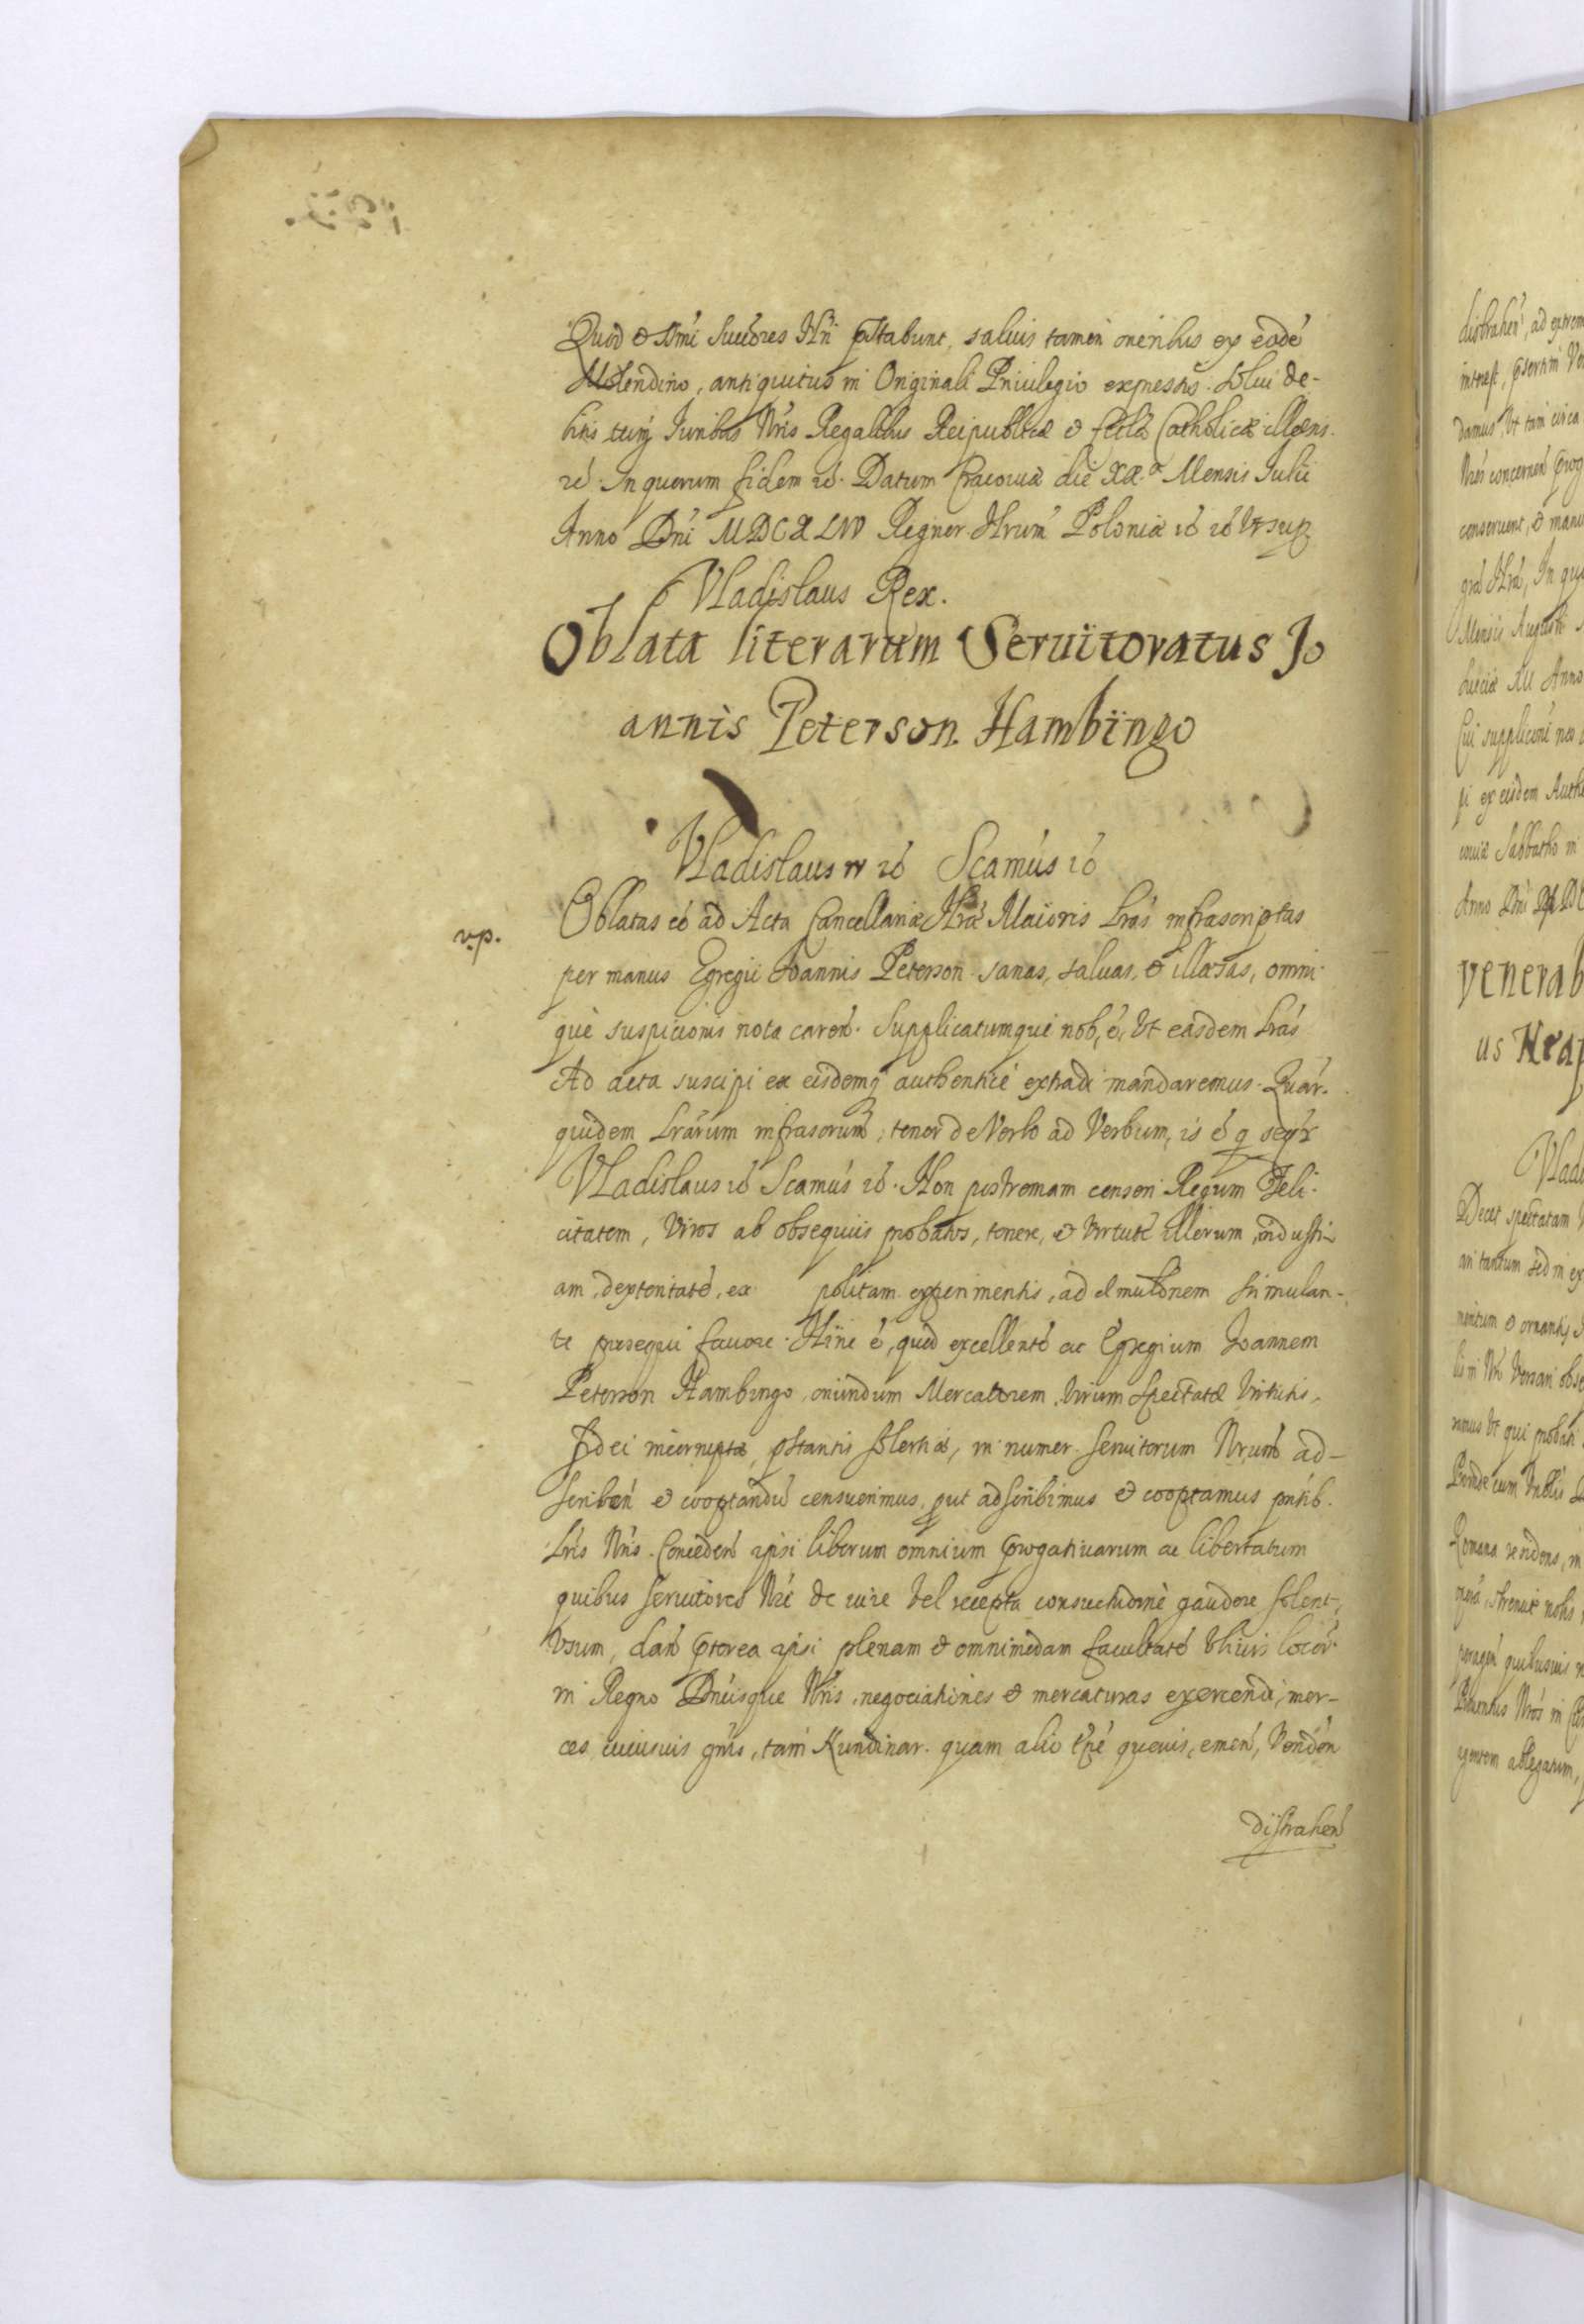 Quod & S̃mi Succõres Ñri p̃stabunt, saluis tamen oneribus ex eodé
Molendino, antiquitus in Originali Priuilegio expressis. Solui de-
bitis tumq̃ Iuribus Ñris Regalibus Reipublicæ & Ecclã Catholicæ illæsis.
ré. In quorum fidem ré. Datum Cracouiæ die XX.ª Mensis Iulii
Anno Dñi MDCXLIV Regnor. Ñrum Poloniæ ré ré Vt sup
Vladislaus Rex.
Oblata literarum Seruitoratus Jo
annis Peterson Hambingo
Vladislaus IV ré Scamús ré
v.p.
Oblatas eé ad Acta Cancellariæ Ñræ Maioris Lras infrascriptas
per manus Egregii Ioannis Peterson sanas, saluas, & illæsas, omni
què suspicionis nota caren. Supplicatumque nob, é, Vt easdem Lrás
Ad acta suscipi ex eisdemq́ authenticé extradi mandaremus. Quár.
quidem Lrárum infrascrum, tenor de Verbo ad Verbum, is é q seqr
Vladislaus ré Scamús ré. Non postremam censeri Regum Feli-
citatem, Viros ab obsequiis probatos, tenere, & Virtuté illorum, industri-
am, dexteritaté, ex politam experimentis, ad æmulõnem stimulan-
te prosequi fauore. Hinc é, quod excellenté ac Egregium Ioannem
Peterson Hambingo, oriundum Mercatorem, Virum Spectatæ Virtutis,
Fidei incorruptæ, p̃stantis solertiæ, in numer. seruitorum Nrum ad-
scriben & cooptandũ censuerimus, put adscribimus & cooptamus pntib.
Lris Nris. Conceden ipsi liberum omnium p̃rogatiuarum ac libertatum
quibus seruitores Nri de iure Vel recepta consuetudine gaudere solent,
Vsum, dan p̃terea ipsi plenam & omnimodam facultaté Vbiuis locor.
in Regno Dniisque Nris, negociationes & mercaturas exercendi, mer-
ces cuiusuis gnris, tam Nundinar. quam alio tpe quouis, emen, Venden
distrahen